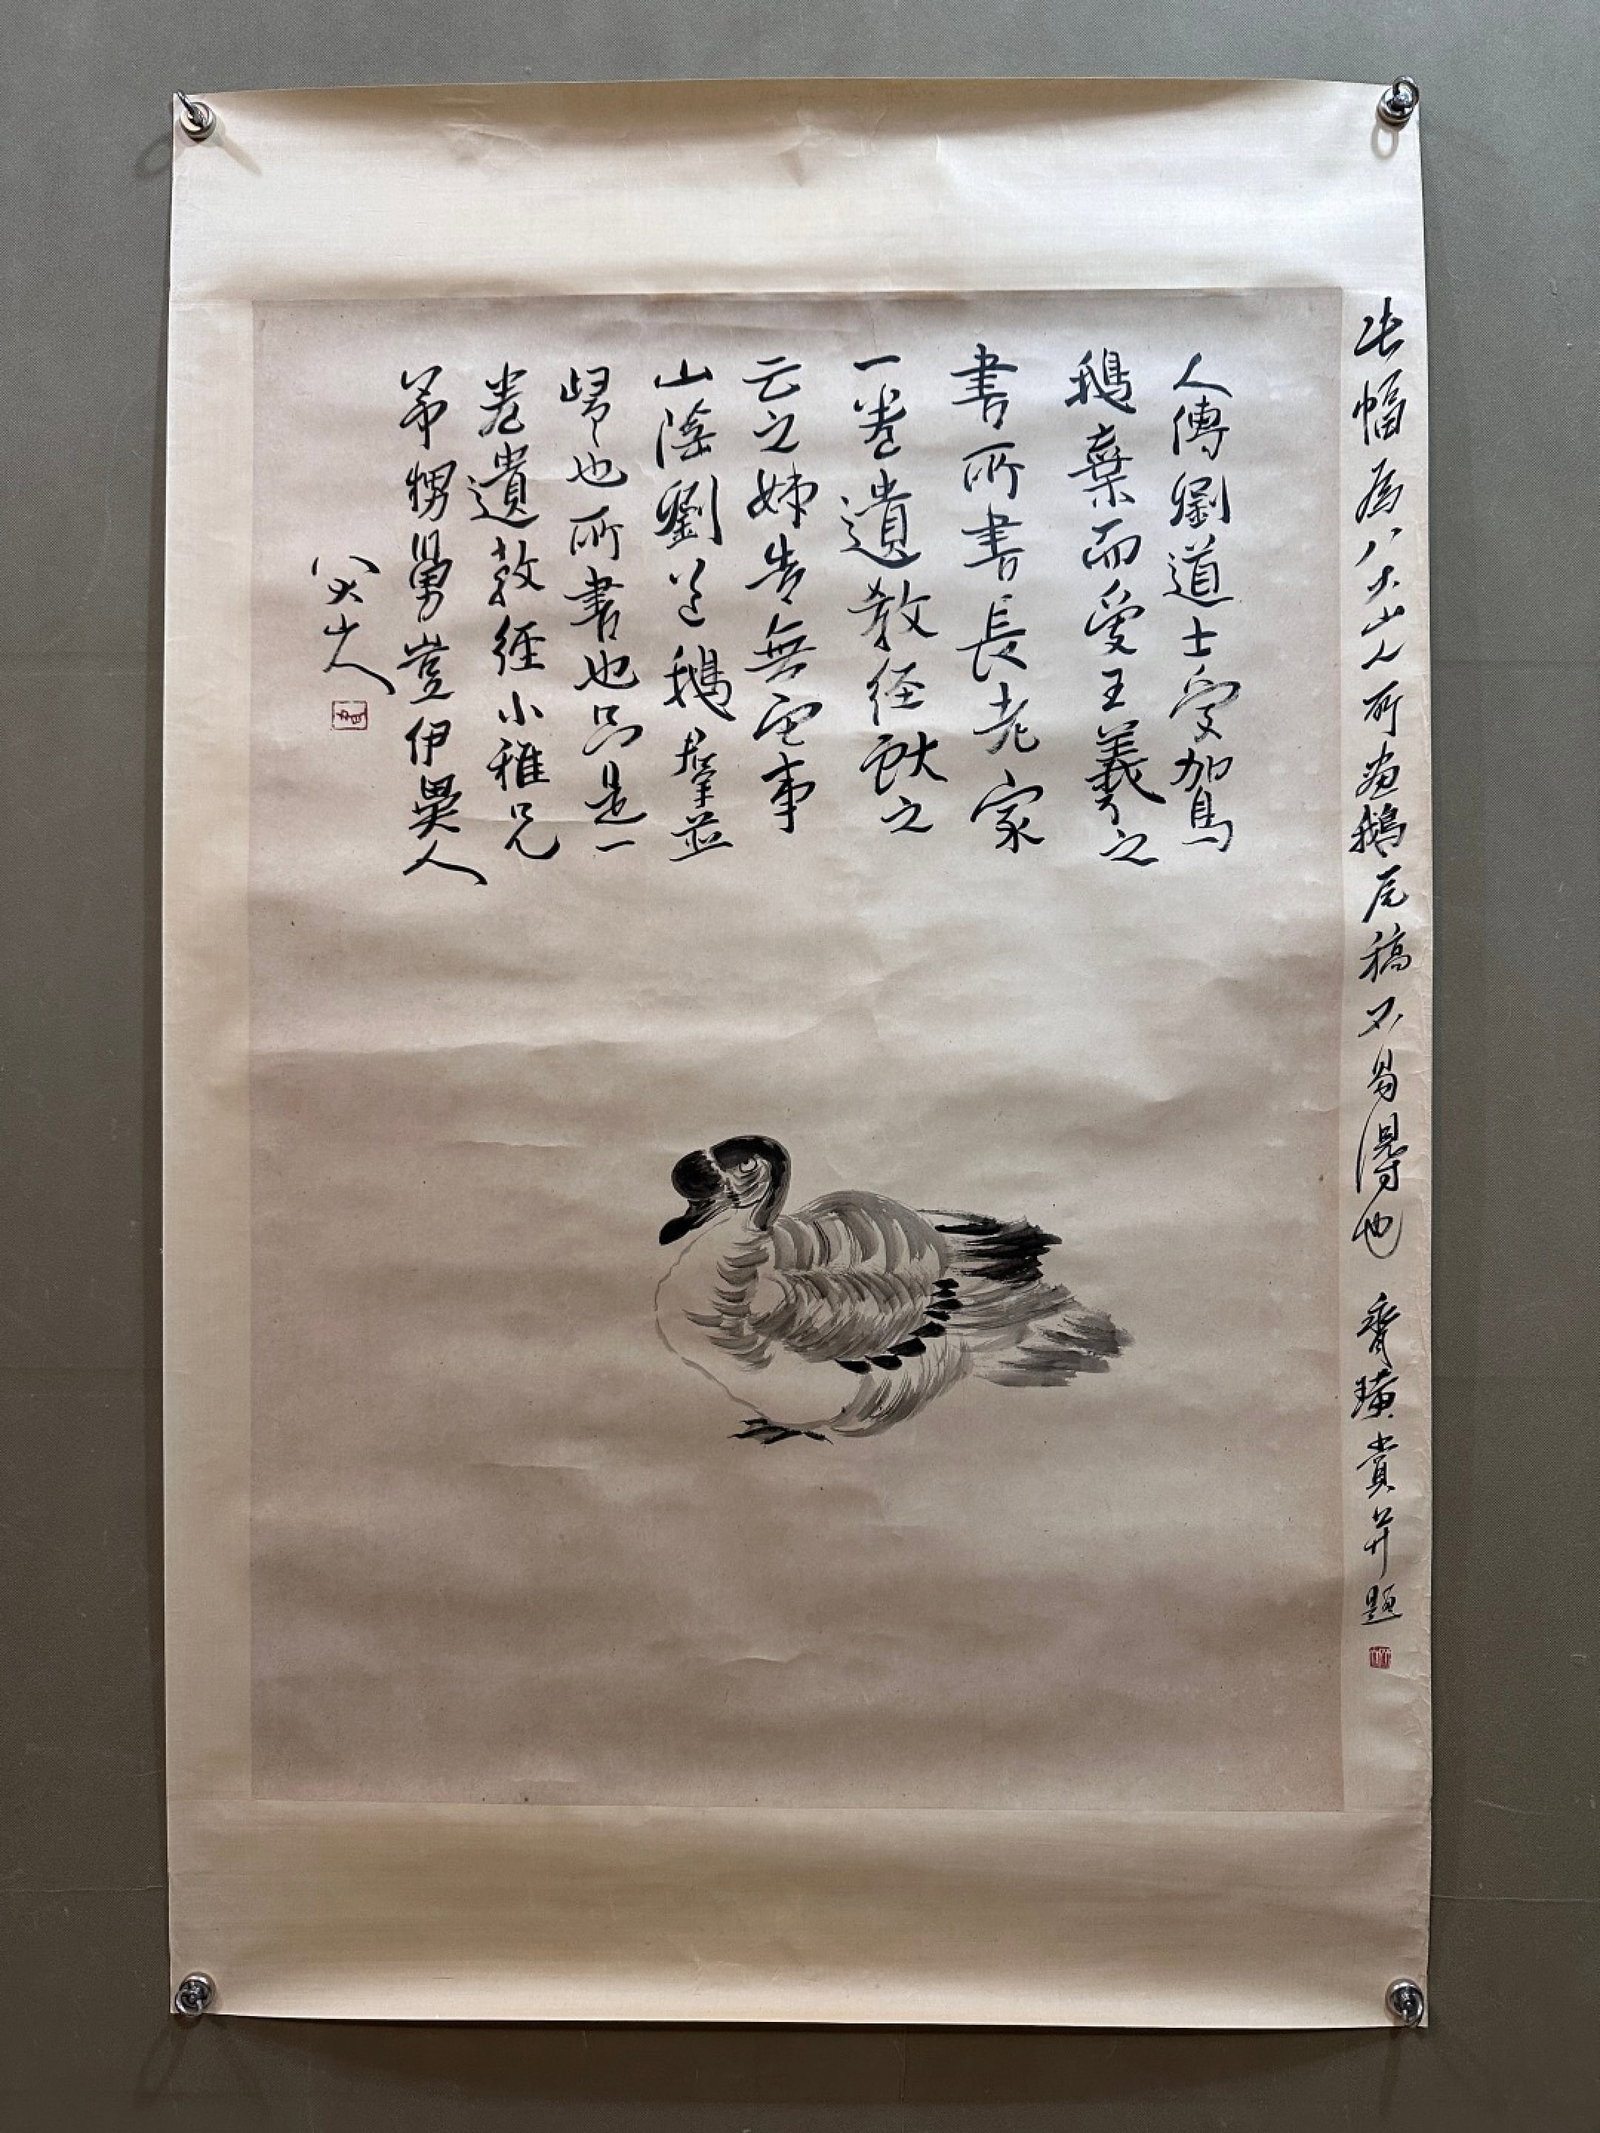 此幅為八大山人所畫鵝尾稿不易得也 齊璜賞并題
人傳劉道士愛駕
鵝棄而愛王羲之
書所書長老家
一卷遺教経獻之
云之姊告無它事
山陰劉道鵝群並
歸也所書也只是一
卷遺教經小雅兄
弟甥舅豈伊異人
八大山人